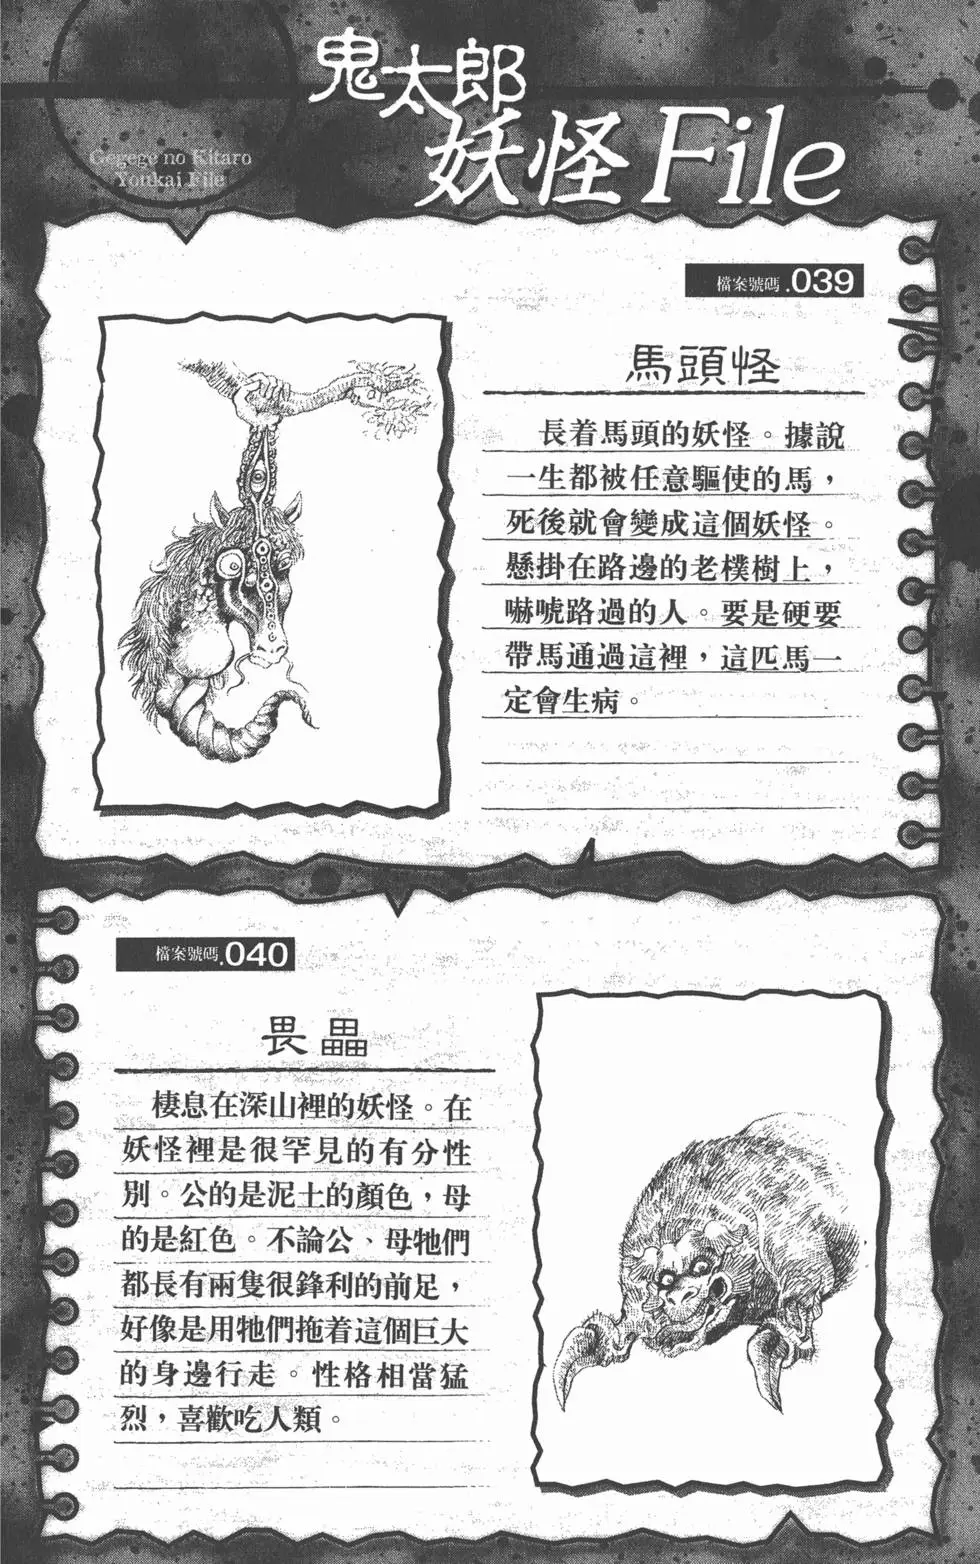 鬼太郎
妖怪File
Gegege no Kitaro
Youkai File
檔案號碼.039
馬頭怪
長着馬頭的妖怪。據說
一生都被任意驅使的馬，
死後就會變成這個妖怪。
懸掛在路邊的老樸樹上，
嚇唬路過的人。要是硬要
帶馬通過這裡，這匹馬一
定會生病。
檔案號碼.040
畏畾
棲息在深山裡的妖怪。在
妖怪裡是很罕見的有分性
別。公的是泥土的顏色，母
的是紅色。不論公、母牠們
都長有兩隻很鋒利的前足，
好像是用牠們拖着這個巨大
的身邊行走。性格相當猛
烈，喜歡吃人類。